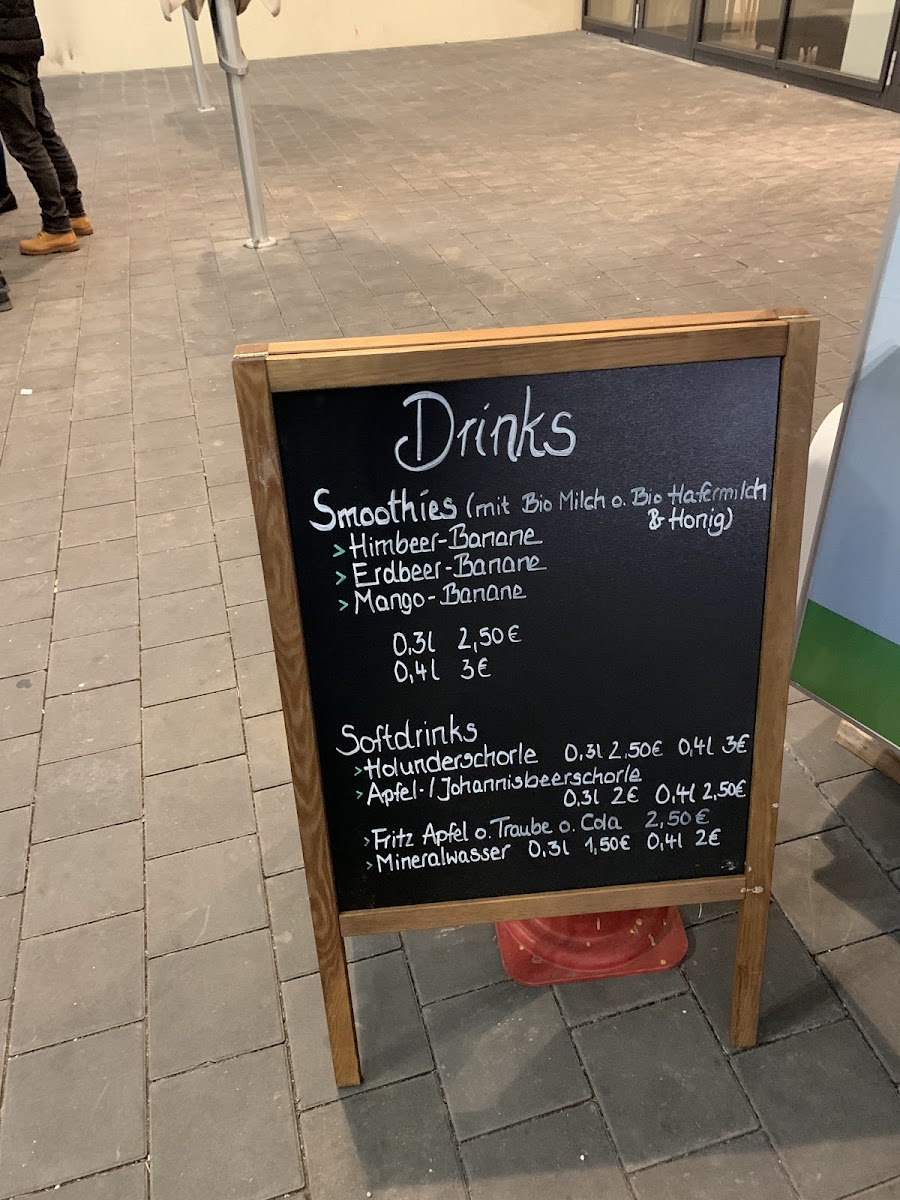 Drinks
Smoothies (mit Bio Milch o. Bio Hafermilch
& Honig)
> Himbeer-Banane
> Erdbeer-Banane
> Mango-Banane
0,3l 2,50€
0,4l 3€
Softdrinks
> Holunderschorle 0,3l 2,50€ 0,4l 3€
> Apfel-/Johannisbeerschorle
0,3l 2€ 0,4l 2,50€
> Fritz Apfel o. Traube o. Cola 2,50€
> Mineralwasser 0,3l 1,50€ 0,4l 2€